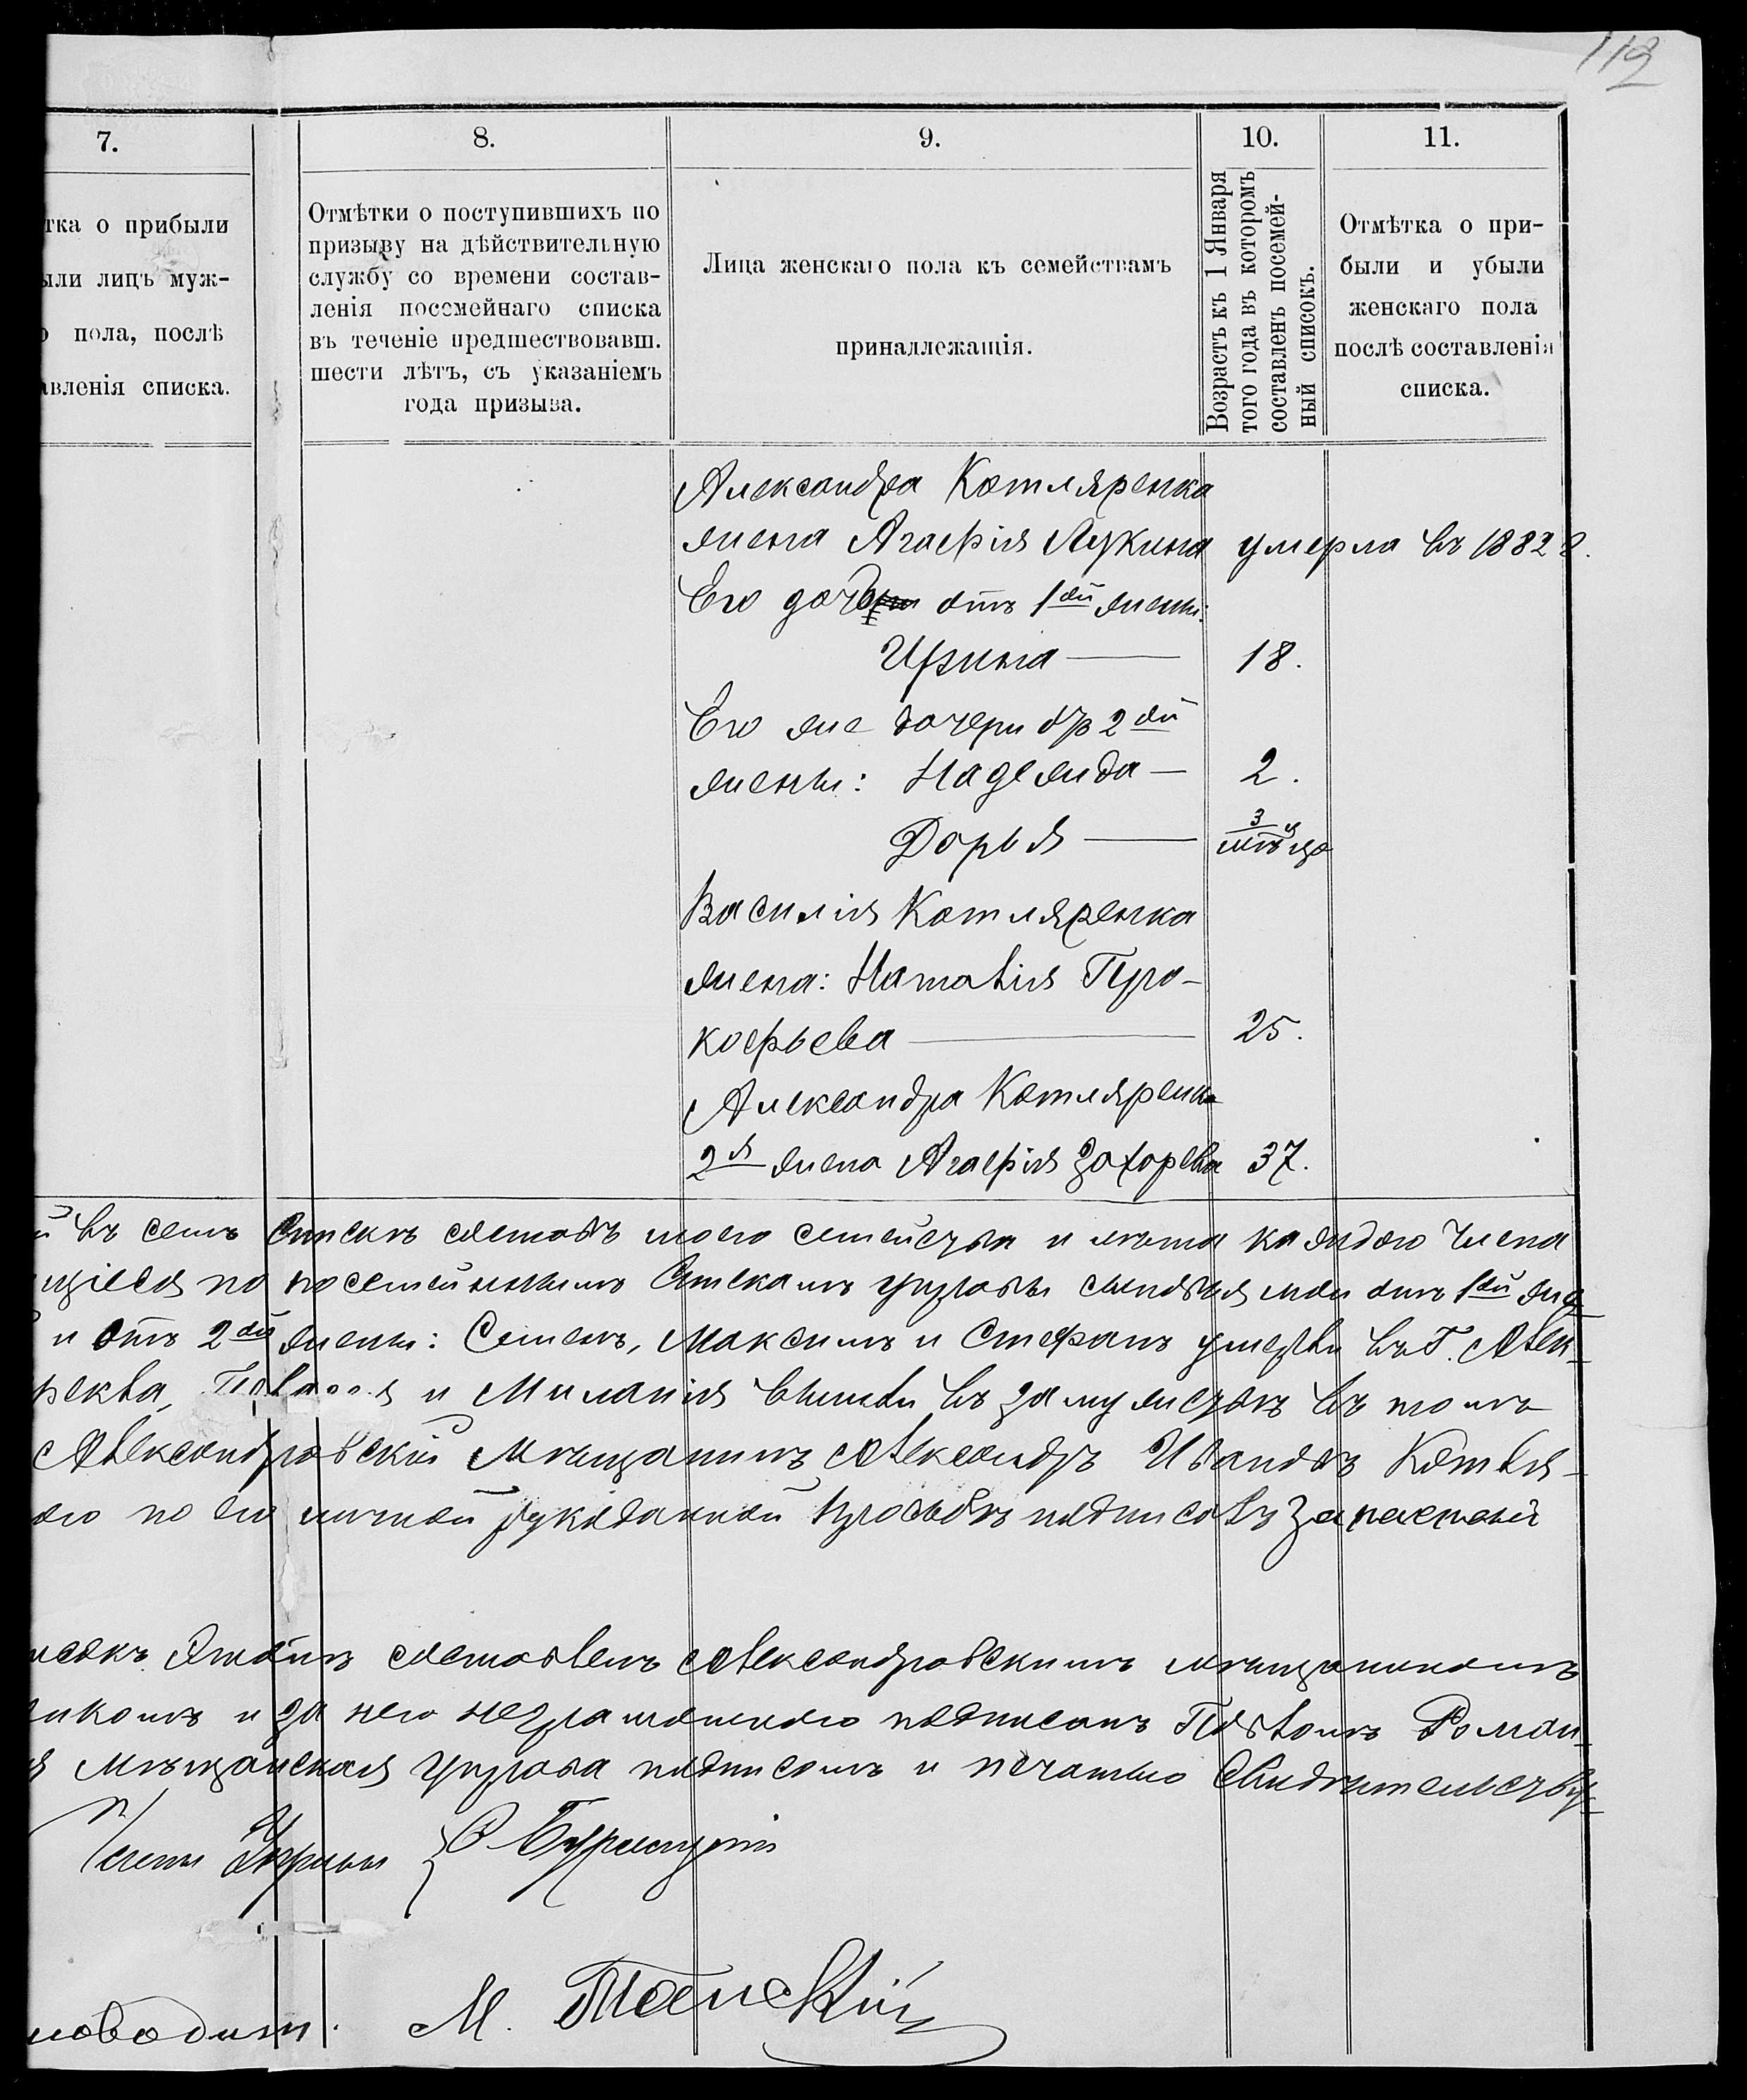 112
7.
тка о прибыли
ыли лицъ муж-
о пола, послѣ
авленія списка.
8.
Отмѣтки о поступившихъ по
призыву на дѣйствительную
службу со времени состав-
ленія посемейнаго списка
въ теченіе предшествовавш.
шести лѣтъ, съ указаніемъ
года призыва.
9.
Лица женскаго пола къ семействамъ
принадлежащія.
10.
Возрастъ къ 1 Января
того года въ которомъ
составленъ посемей-
ный списокъ.
11.
Отмѣтка о при-
были и убыли
женскаго пола
послѣ составленія
списка.
Александра Котляренка
жена Агафія Лукина умерла въ 1882 г.
Его дочь отъ 1ой жены:
Ирина — 18.
Его же дочери отъ 2ой
жены: Надежда — 2.
Дарья — 3 мѣсяца
Василія Котляренка
жена: Наталія Про-
кофьева — 25.
Александра Котляренка
2я жена Агафія Захарева 37.
й въ семъ спискѣ составъ моего семейства и лѣта каждаго члена
щіеся по посемейнымъ спискамъ управы сыновья мои отъ 1ой же
и отъ 2ой жены: Семенъ, Максимъ и Стефанъ умерли въ Г. Алек-
и Миланія вышли въ замужество въ томъ
Александровскій Мѣщанинъ Александръ Ивановъ Котля-
ого по его личной рукоданной просьбѣ подписалъ
составленъ Александровскимъ мѣщаниномъ
и за него неграмотнаго подписанъ Павломъ Роман-
я Мѣщанская Управа подписомъ и печатью свидѣтельству-
Члены Управы
новодит. М. Танскій